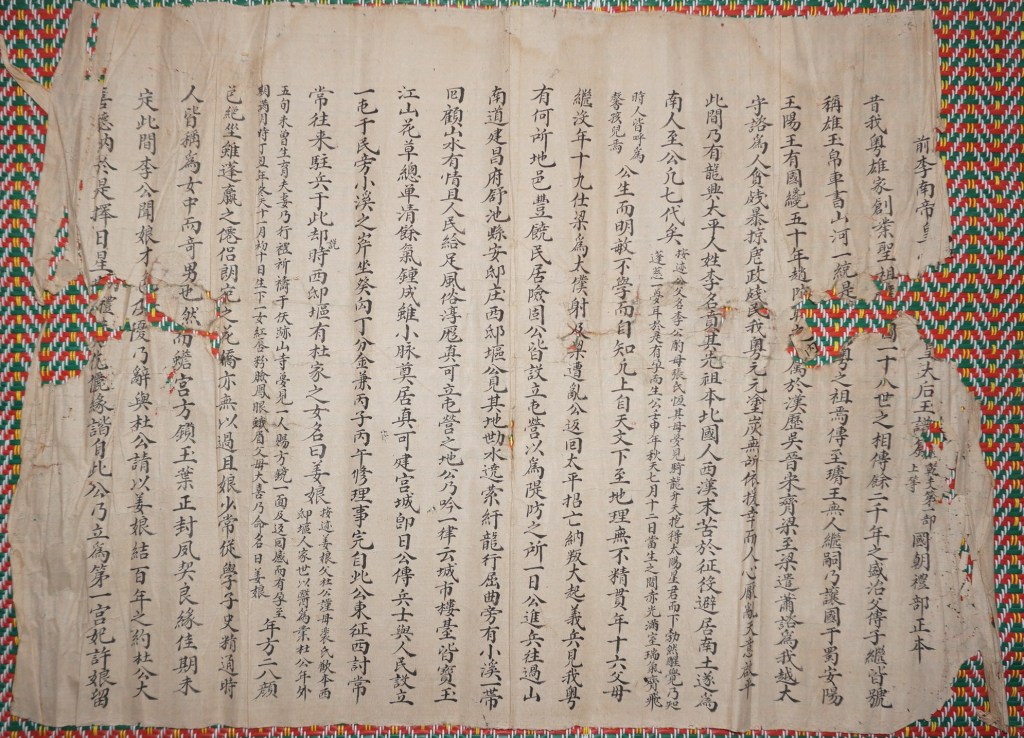 前李南帝皇 皇太后玉譜 支乾夫第一部 上等 國朝禮部正本
昔我粤雄家創業聖祖 國一十八世之相傳餘二千年之盛治父傳子繼皆號
稱雄王帛車書山河一統是 粤之祖焉傳至璿王無人繼嗣乃讓國于蜀安陽
王陽王有國纔五十年趙陀 之 属於漢歷吳晉宋齊梁至梁遣蕭諮為我越太
守諮為人貪殘暴掠虐政殘民我粤元元塗炭無所依投幸而人心厭亂天意
此間乃有龍興太平人姓李名賁其先祖本北國人西漢末苦於征役避居南土遂為
南人至公凡七代矣 按遞公父名李公蔚母張氏恆其母夢見騎龍升天挖得太陽星君而下勃然醒覺乃
蓬然一聲耳於是有孕而生公壬申年秋天七月十二日當生之間赤光满室瑞氣齊飛
時人皆呼為
馨孩兒焉 公生而明敏不學而自知凡上自天文下至地理無不精貫年十六父母
繼沒年十九仕梁為太僕射乃梁遭亂公返回太平招亡納叛大起義兵見我粤
有何所地邑豊饒民居險固公皆設立屯營以為隄防之所一日公進兵往過山
南道建昌府舒池縣安邸庄西邸堰公見其地勘水遶縈紆龍行屈曲旁有小溪一帶
回顧山水有情且人民給足風俗淳厖真可立屯營之地公乃吟一律云城市樓臺皆寶玉
江山花草總單清餘氣鍾成雖小脉莫居真可建宮城卽日公傳兵士與人民設立
一屯于民旁小溪之岸坐癸向丁分金兼丙子丙午修理事完自此公東征西討常
常往来駐兵于此却說時西邸堰有杜家之女名曰姜娘 按遞姜娘父杜公謹母裴氏歡本西
邸堰人家世以醫為業杜公年外
五旬未曾生育夫妻乃行禮祈禱于佚跡山寺夢見一人賜方鏡一面及返回感而有孕至
期满月特丁丑年冬天十一月初十日生下一女紅唇粉臉鳳眼蛾眉父母大喜乃命名曰姜娘 年方二八顏
色絶些雖蓬嬴之僊侣朗苑之花嬌亦無以過且娘少常從學子史精通時
人皆稱為女中而奇男也然而蟾宮方鎖玉葉正封夙契良緣佳期未
定此間李公聞娘才 度乃辭與杜公請以姜娘結百年之約杜公大
喜悉納於是擇日星 禮 花嚴緣諧自此公乃立為第一宮妃許娘留